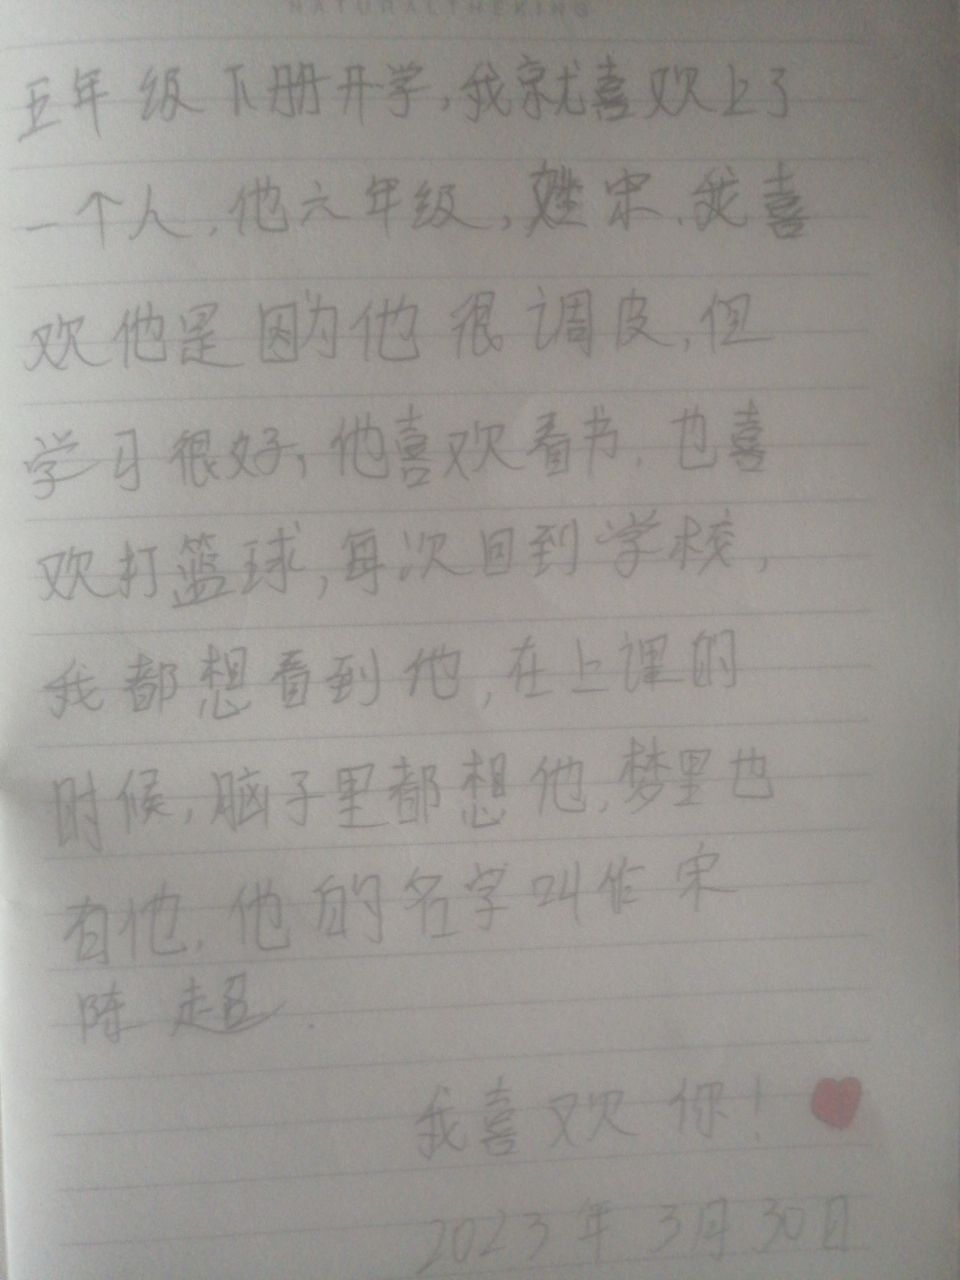 NATURALTHEKING
五年级下册开学,我就喜欢上了
一个人,他六年级,姓宋.我喜
欢他是因为他很调皮,但
学习很好,他喜欢看书.也喜
欢打篮球,每次回到学校,
我都想看到他,在上课的
时候,脑子里都想他,梦里也
有他.他的名字叫作宋
陈超.
我喜欢你!
2023年3月30日